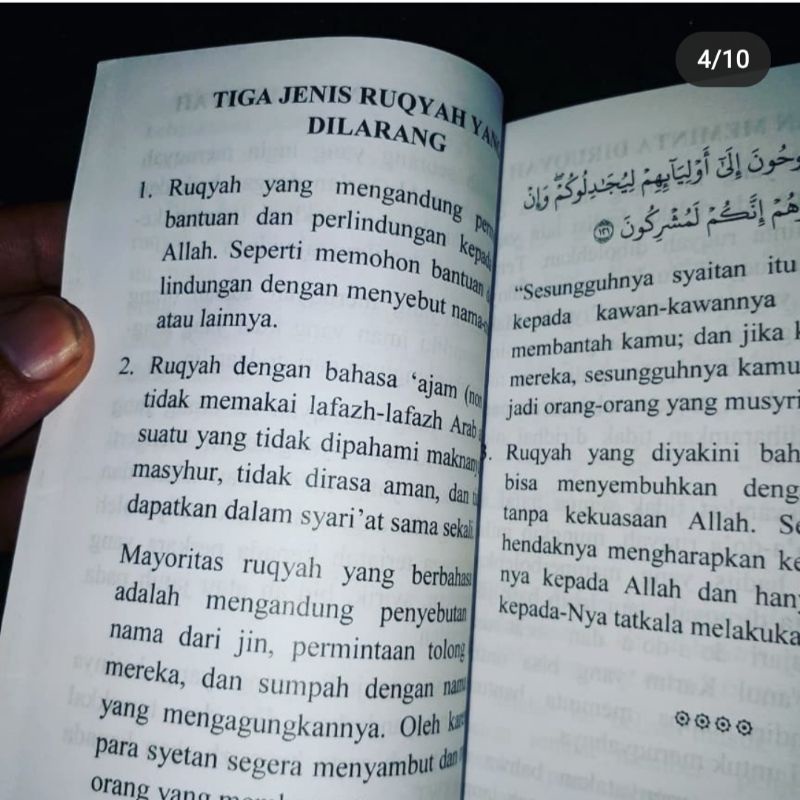 4/10
TIGA JENIS RUQYAH
DILARANG
1. Ruqyah yang mengandung
bantuan dan perlindungan
Allah. Seperti memohon bantuan
lindungan dengan menyebut
atau lainnya.
2. Ruqyah dengan bahasa ‘ajam
tidak memakai lafazh-lafazh Arab
suatu yang tidak dipahami
masyhur, tidak dirasa aman, dan
dapatkan dalam syari’at sama
Mayoritas ruqyah yang
adalah mengandung penyebutan
nama dari jin, permintaan tolong
mereka, dan sumpah dengan
yang mengagungkannya. Oleh
para syetan segera menyambut dan
orang yang
إِلَىٰٓ أَوْلِيَآئِهِمْ لِيُجَٰدِلُوكُمْ ۖ وَإِنْ
إِنَّكُمْ لَمُشْرِكُونَ ١٢١
“Sesungguhnya syaitan itu
kepada kawan-kawannya
membantah kamu; dan jika
mereka, sesungguhnya kamu
jadi orang-orang yang
Ruqyah yang diyakini
bisa menyembuhkan
tanpa kekuasaan Allah.
hendaknya mengharapkan
nya kepada Allah dan
kepada-Nya tatkala